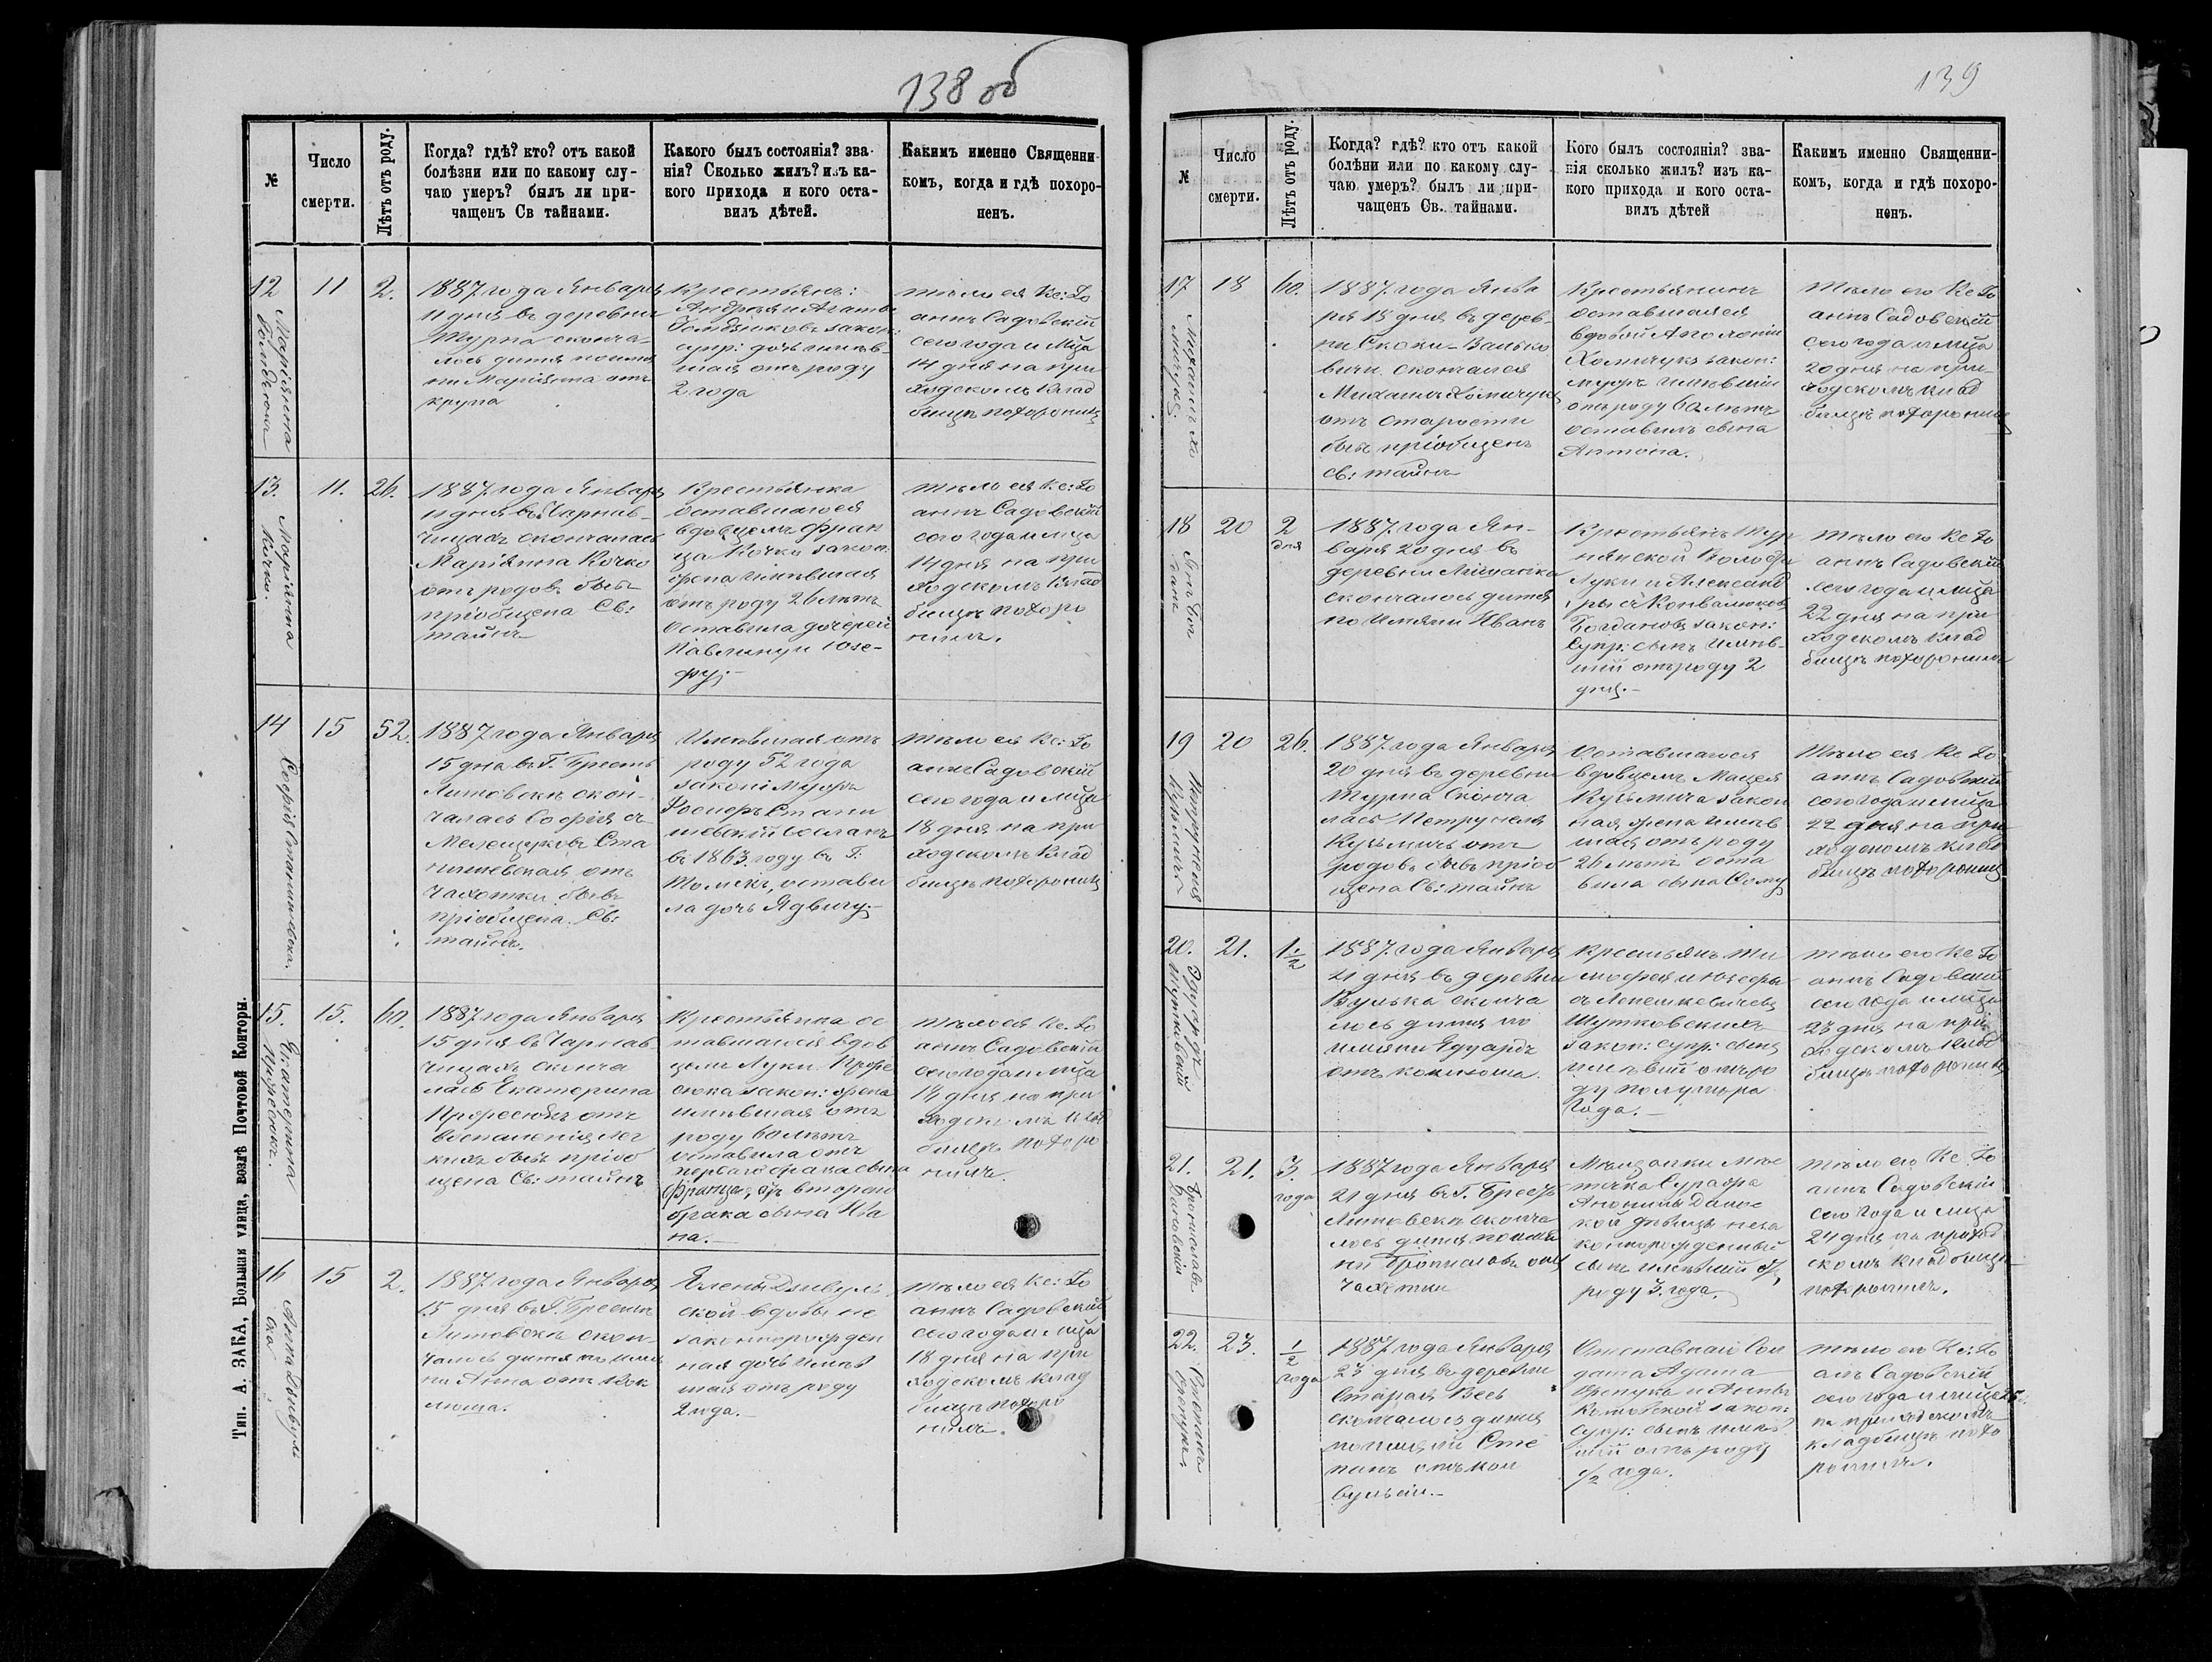 138 об
№
Число
смерти.
Лѣтъ отъ роду.
Когда? гдѣ? кто? отъ какой
болѣзни или по какому слу-
чаю умеръ? былъ ли при-
чащенъ Св тайнами.
Какого былъ состоянія? зва-
нія? Сколько жилъ? изъ ка-
кого прихода и кого оста-
вилъ дѣтей.
Какимъ именно Священни-
комъ, когда и гдѣ похоро-
ненъ.
12
Маріянна
11
2.
1887 года Января
11 дня въ деревни
Турна сконча-
лось дитя по имя
ни Маріянна отъ
крупа
Крестьянъ:
Андрея и Агаты
закон:
супр: дочь имѣв-
шая отъ роду
2 года
тѣло ея Кс: Іо
аннъ Садовскій
сего года и мѣца
14 дня на при
ходскомъ клад
бищѣ похоронилъ
13.
Маріянна
Кочко.
11.
26.
1887 года Января
11 дня въ Чернав-
чицахъ скончалась
Маріянна Кочко
отъ родовъ бывъ
пріобщена Св:
тайнъ
Крестьянка
оставшагося
вдовцемъ Фран
ца Кочко закон:
жена имѣвшая
отъ роду 26 лѣтъ
оставила дочерей
Павлину и Юзе-
фу;-
тѣло ея Кс: Іо
аннъ Садовскій
сего года и мѣца
14 дня на при
ходскомъ клад
бищѣ похоро
нилъ.
14
Софія Станишевска.
15
52.
1887 года Января
15 дня въ Г. Брестъ
Литовскѣ скон-
чалась Софія съ
Мелещуковъ Ста
нишевская отъ
чахотки бывъ
пріобщена Св:
тайнъ.
Имѣвшая отъ
роду 52 года
закон: мужъ
Стани
шевскій сосланъ
въ 1863 году въ Г:
Томскъ, остави
ла дочь Ядвигу;-
тѣло ея Кс: Іо
аннъ Садовскій
сего года и мѣца
18 дня на при
ходскомъ клад
бищѣ похоронилъ
15.
Екатерина
15.
60.
1887 года Января
15 дня въ Чернав
чицахъ сконча
лась Екатерина
отъ
воспаленія лег
кихъ бывъ пріоб
щена Св: тайнъ
Крестьянка ос
тавшагося вдов
цемъ Луки
закон: жена
имѣвшая отъ
роду 60 лѣтъ
оставила отъ
перваго брака сына
Франца, отъ второго
брака сына Ива
на.-
тѣло ея Кс: Іо
аннъ Садовскій
сего года и мѣца
дня на при
ходскомъ клад
бищѣ похоро
нилъ.
16
Анна
15
2.
1887 года Января
15 дня въ Г. Брестъ
Литовскѣ скон-
чалось дитя по имя
ни Анна отъ кок
люша.
Елены
ской вдовы не
законнорожден
ная дочь имѣв
шая отъ роду
2 года.-
тѣло ея Кс: Іо
аннъ Садовскій
сего года и мѣца
18 дня на при
ходскомъ клад
бищѣ похоро
нилъ.
Тип. А. ЗАКА, Большая улица, возлѣ Почтовой Конторы.
139
№
Число
смерти.
Лѣтъ отъ роду.
Когда? гдѣ? кто отъ какой
болѣни или по какому слу-
чаю умеръ? былъ ли при-
чащенъ Св. тайнами.
Кого былъ состоянія? зва-
нія сколько жилъ? изъ ка-
кого прихода и кого оста-
вилъ дѣтей
Какимъ именно Священни-
комъ, когда и гдѣ похоро-
ненъ.
17
Михаилъ Хо
мичукъ
18
60.
1887 года Янва
ря 18 дня въ дерев-
ни Скоки-
скончался
Михаилъ Хомичукъ
отъ старости
бывъ пріобщенъ
св: тайнъ
Крестьянинъ
оставшаяся
вдовой Аполоніи
Хомичукъ закон:
мужъ имѣвшій
отъ роду 60 лѣтъ
оставилъ сына
Антона.
тѣло его Кс Іо
аннъ Садовскій
сего года и мѣца
20 дня на при-
ходскомъ клад
бищѣ похоронилъ
18
20
2
дня
1887 года Ян-
варя 20 дня въ
деревни
скончалось дитя
по имяни Иванъ
Крестьянъ Тур
нянской Волости
Луки и Александ
ры съ
Богдановъ закон:
супр: сынъ имѣв-
шій отъ роду 2
дня.-
тѣло его Кс Іо
аннъ Садовскій
сего года и мѣца
22 дня на при
ходскомъ клад
бищѣ похоронилъ
19
Петрунеля
Кузьмичъ
20
26.
1887 года Января
20 дня въ деревни
Турна сконча
лась Петрунеля
Кузьмичъ отъ
родовъ бывъ пріоб
щена Св: тайнъ
Оставшагося
вдовцемъ Мацея
Кузьмича закон
ная жена имѣв
шая отъ роду
26 лѣтъ оста
вила сына Фому
тѣло ея Кс Іо
аннъ Садовскій
сего года и мѣца
22 дня на при
ходскомъ клад
бищѣ похоронилъ
20.
Эдуардъ
Шутковскій
21.
1 1/2
1887 года Января
21 дня въ деревни
Вулька сконча
лось дитя по
имяни Эдуардъ
отъ коклюша.
Крестьянъ Ти
мофея и Юзефы
съ Лепешкевичевъ
Шутковскихъ
закон: супр: сынъ
имѣвшій отъ ро
ду полутора
года.-
тѣло его Кс Іо
аннъ Садовскій
сего года и мѣца
23 дня на при
ходскомъ клад
бищѣ похоронилъ
21.
Брониславъ
21.
3.
года
1887 года Января
21 дня въ Г. Брестъ
Литовскѣ сконча
лось дитя по имя
ни Брониславъ отъ
чахотки
Мѣщанки мѣс
течка Суража
кой дѣвицы неза
коннорожденный
сынъ имѣвшій отъ
роду 3. года.
тѣло его Кс Іо
аннъ Садовскій
сего года и мѣца
24 дня на приход
скомъ кладбищѣ
похоронилъ.
22.
23.
1/2
года
1887 года Января
23 дня въ деревни
Старая Весь
скончалось дитя
по имяни Сте
панъ отъ кон
вульсіи.-
Отставнаго Сол
дата Адама
и Анны
закон:
супр: сынъ имѣв
шій отъ роду
1/2 года.
тѣло его Кс: Іо
анъ Садовскій
сего года и мѣца 25
на приходскомъ
кладбищѣ похо
ронилъ.